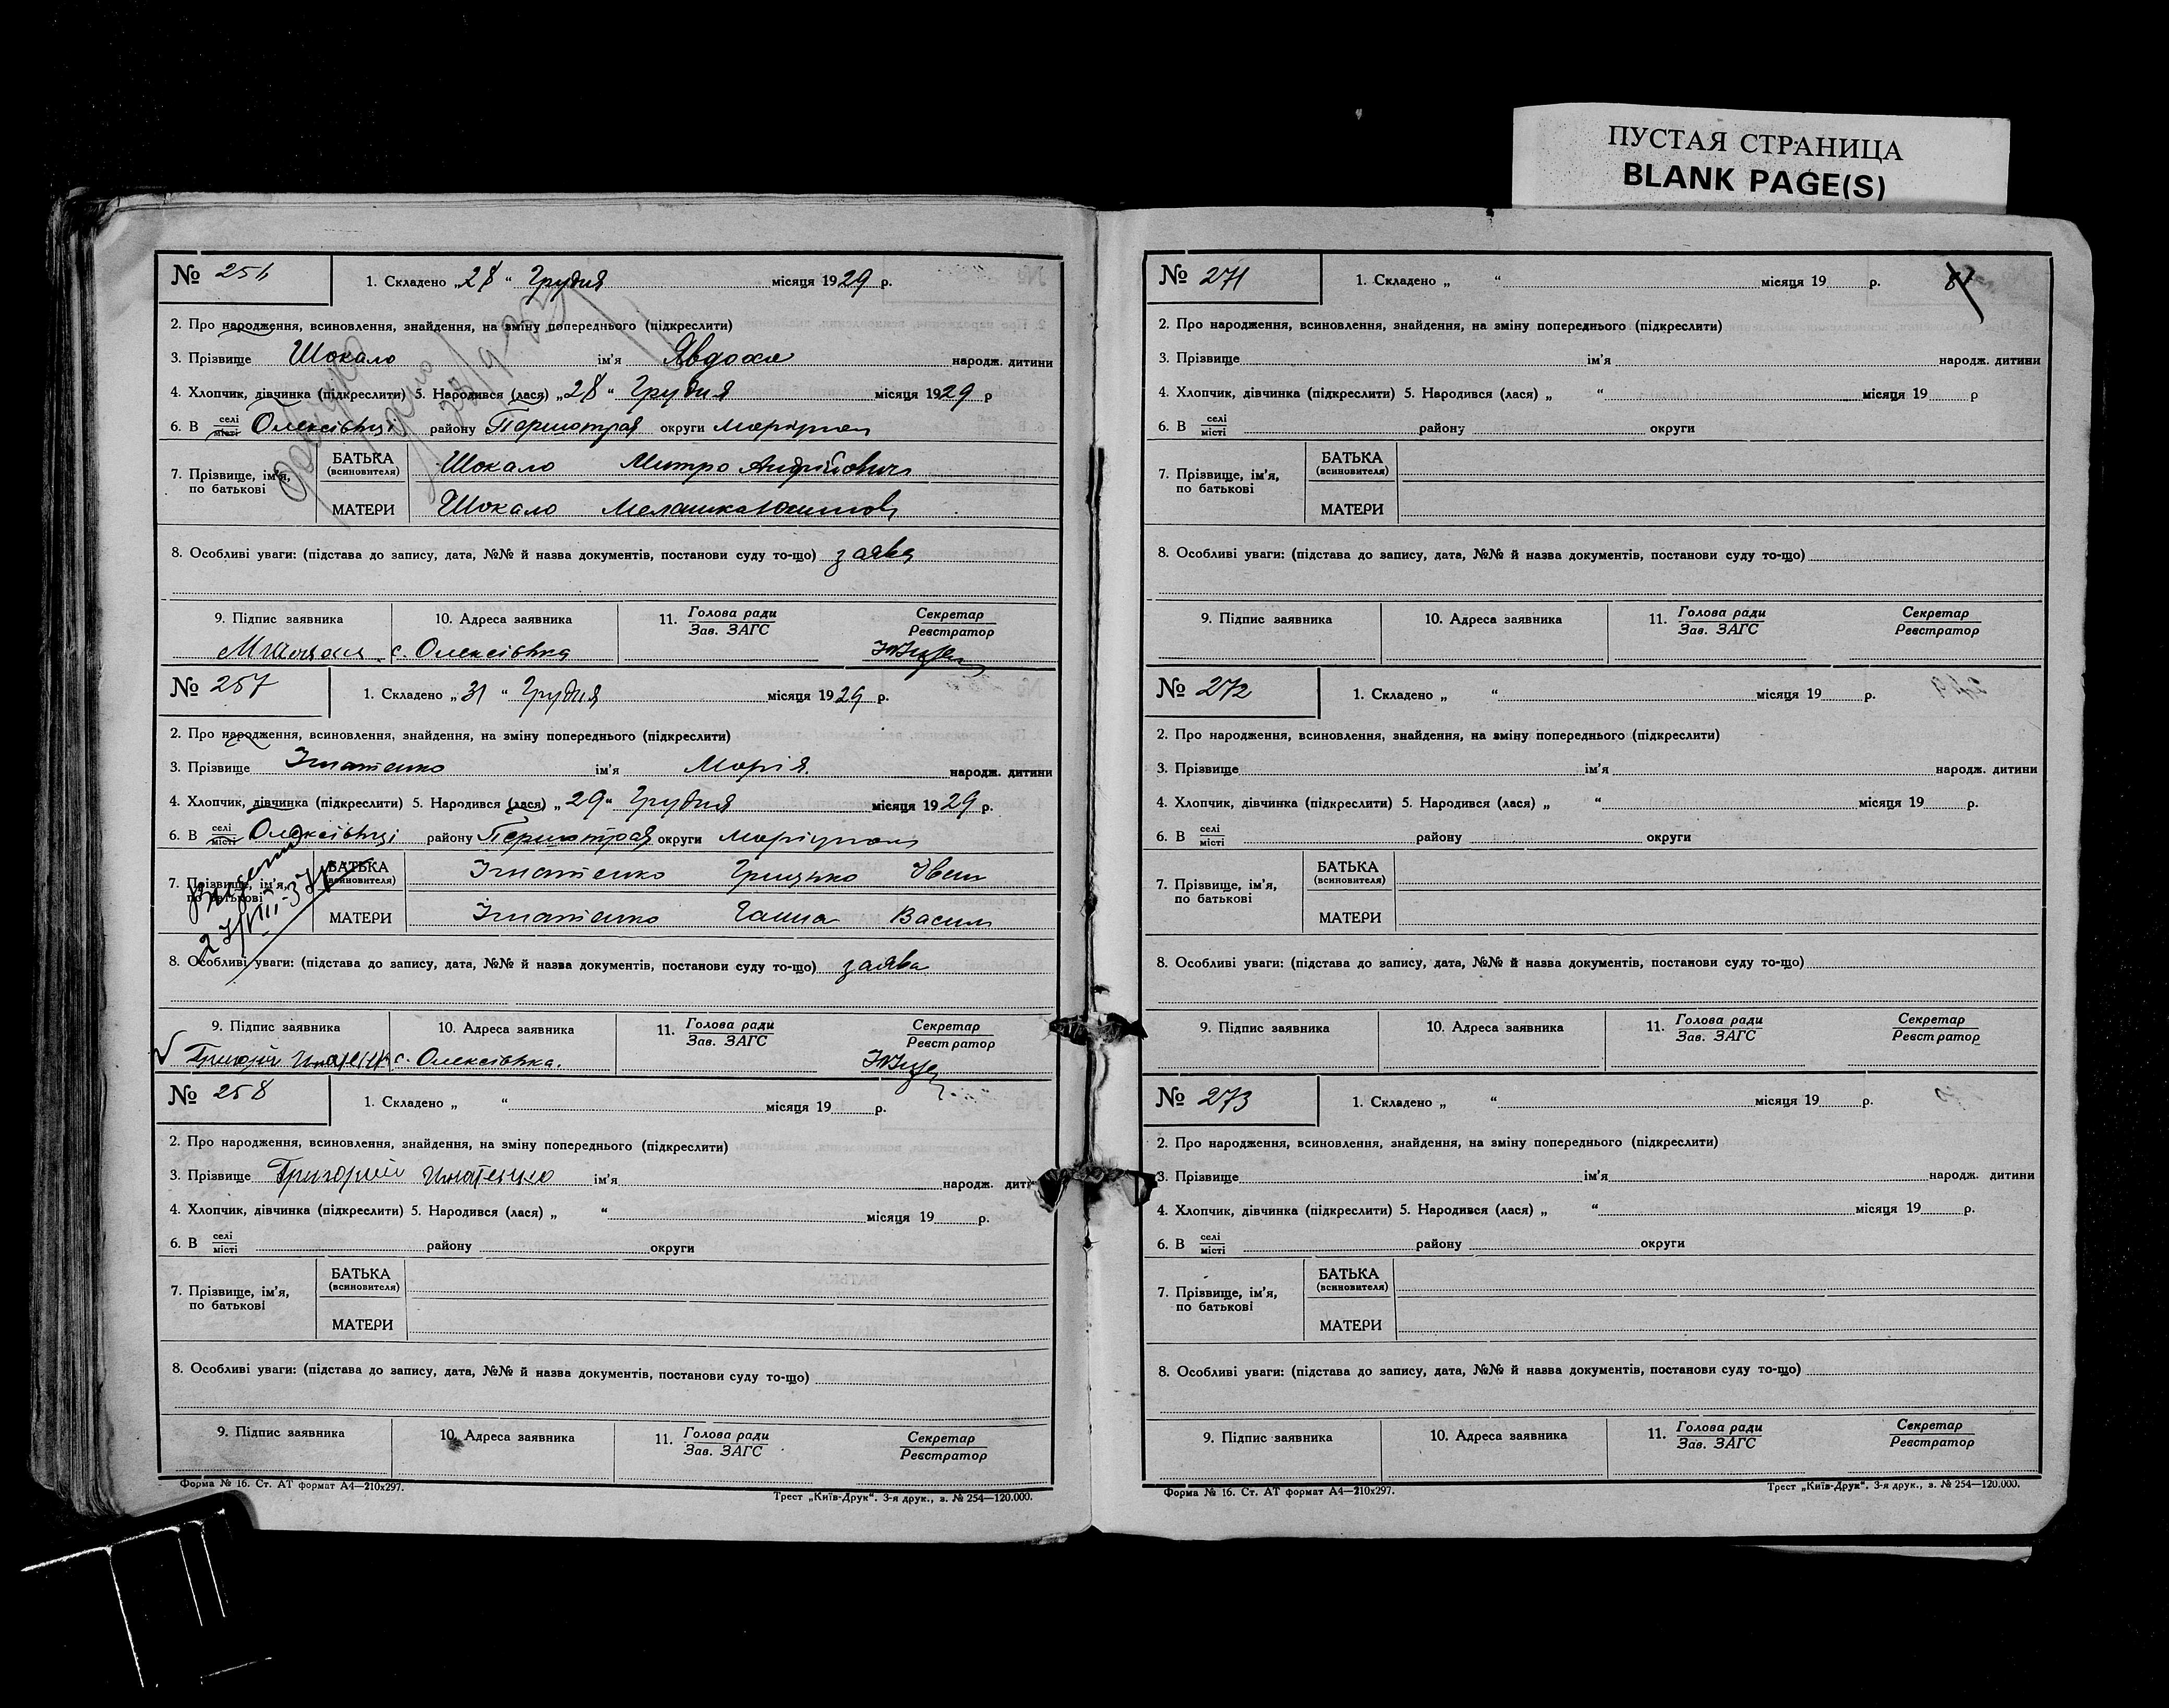 ПУСТАЯ СТРАНИЦА
BLANK PAGE(S)
№ 256
1. Складено „28“ Грудня місяця 1929 р.
2. Про народження, всиновлення, знайдення, на зміну попереднього (підкреслити)
3. Прізвище Шокало ім'я Явдоха народж. дитини
4. Хлопчик, дівчинка (підкреслити) 5. Народився (лася) „28“ Грудня місяця 1929 р
6. В селі місті Олексівці району Першотрав округи Маріупол
7. Прізвище, ім'я, по батькові
БАТЬКА (всиновителя) Шокало Митро Андрійович
МАТЕРИ Шокало Мелашка
8. Особливі уваги: (підстава до запису, дата, №№ й назва документів, постанови суду то-що) заява
9. Підпис заявника
10. Адреса заявника
11. Голова ради Зав. ЗАГС
Секретар Реєстратор
с. Олексівка
№ 257
1. Складено „31“ Грудня місяця 1929 р.
2. Про народження, всиновлення, знайдення, на зміну попереднього (підкреслити)
3. Прізвище Ігнатенко ім'я Марія. народж. дитини
4. Хлопчик, дівчинка (підкреслити) 5. Народився (лася) „29“ Грудня місяця 1929 р.
6. В селі місті Олексівці району Першотрав округи Маріупол
7. Прізвище, ім'я, по батькові
БАТЬКА (всиновителя) Ігнатенко Грицько Іван
МАТЕРИ Ігнатенко Ганна Васил
27/VIII-37
8. Особливі уваги: (підстава до запису, дата, №№ й назва документів, постанови суду то-що) заява
9. Підпис заявника
10. Адреса заявника
11. Голова ради Зав. ЗАГС
Секретар Реєстратор
Григорій Игнатенко с. Олексівка.
№ 258
1. Складено „ “ місяця 19 р.
2. Про народження, всиновлення, знайдення, на зміну попереднього (підкреслити)
3. Прізвище Григорий Игнатенко ім'я народж. дити
4. Хлопчик, дівчинка (підкреслити) 5. Народився (лася) „ “ місяця 19 р.
6. В селі місті району округи
7. Прізвище, ім'я, по батькові
БАТЬКА (всиновителя)
МАТЕРИ
8. Особливі уваги: (підстава до запису, дата, №№ й назва документів, постанови суду то-що)
9. Підпис заявника
10. Адреса заявника
11. Голова ради Зав. ЗАГС
Секретар Реєстратор
Форма № 16. Ст. АТ формат А4—210х297.
Трест „Київ-Друк“. 3-я друк., з. № 254—120.000.
№ 271
1. Складено „ “ місяця 19 р.
81
2. Про народження, всиновлення, знайдення, на зміну попереднього (підкреслити)
3. Прізвище ім'я народж. дитини
4. Хлопчик, дівчинка (підкреслити) 5. Народився (лася) „ “ місяця 19 р
6. В селі місті району округи
7. Прізвище, ім'я, по батькові
БАТЬКА (всиновителя)
МАТЕРИ
8. Особливі уваги: (підстава до запису, дата, №№ й назва документів, постанови суду то-що)
9. Підпис заявника
10. Адреса заявника
11. Голова ради Зав. ЗАГС
Секретар Реєстратор
№ 272
1. Складено „ “ місяця 19 р.
2. Про народження, всиновлення, знайдення, на зміну попереднього (підкреслити)
3. Прізвище ім'я народж. дитини
4. Хлопчик, дівчинка (підкреслити) 5. Народився (лася) „ “ місяця 19 р.
6. В селі місті району округи
7. Прізвище, ім'я, по батькові
БАТЬКА (всиновителя)
МАТЕРИ
8. Особливі уваги: (підстава до запису, дата, №№ й назва документів, постанови суду то-що)
9. Підпис заявника
10. Адреса заявника
11. Голова ради Зав. ЗАГС
Секретар Реєстратор
№ 273
1. Складено „ “ місяця 19 р.
2. Про народження, всиновлення, знайдення, на зміну попереднього (підкреслити)
3. Прізвище ім'я народж. дитини
4. Хлопчик, дівчинка (підкреслити) 5. Народився (лася) „ “ місяця 19 р.
6. В селі місті району округи
7. Прізвище, ім'я, по батькові
БАТЬКА (всиновителя)
МАТЕРИ
8. Особливі уваги: (підстава до запису, дата, №№ й назва документів, постанови суду то-що)
9. Підпис заявника
10. Адреса заявника
11. Голова ради Зав. ЗАГС
Секретар Реєстратор
Форма № 16. Ст. АТ формат А4—210х297.
Трест „Київ-Друк“. 3-я друк., з. № 254—120.000.